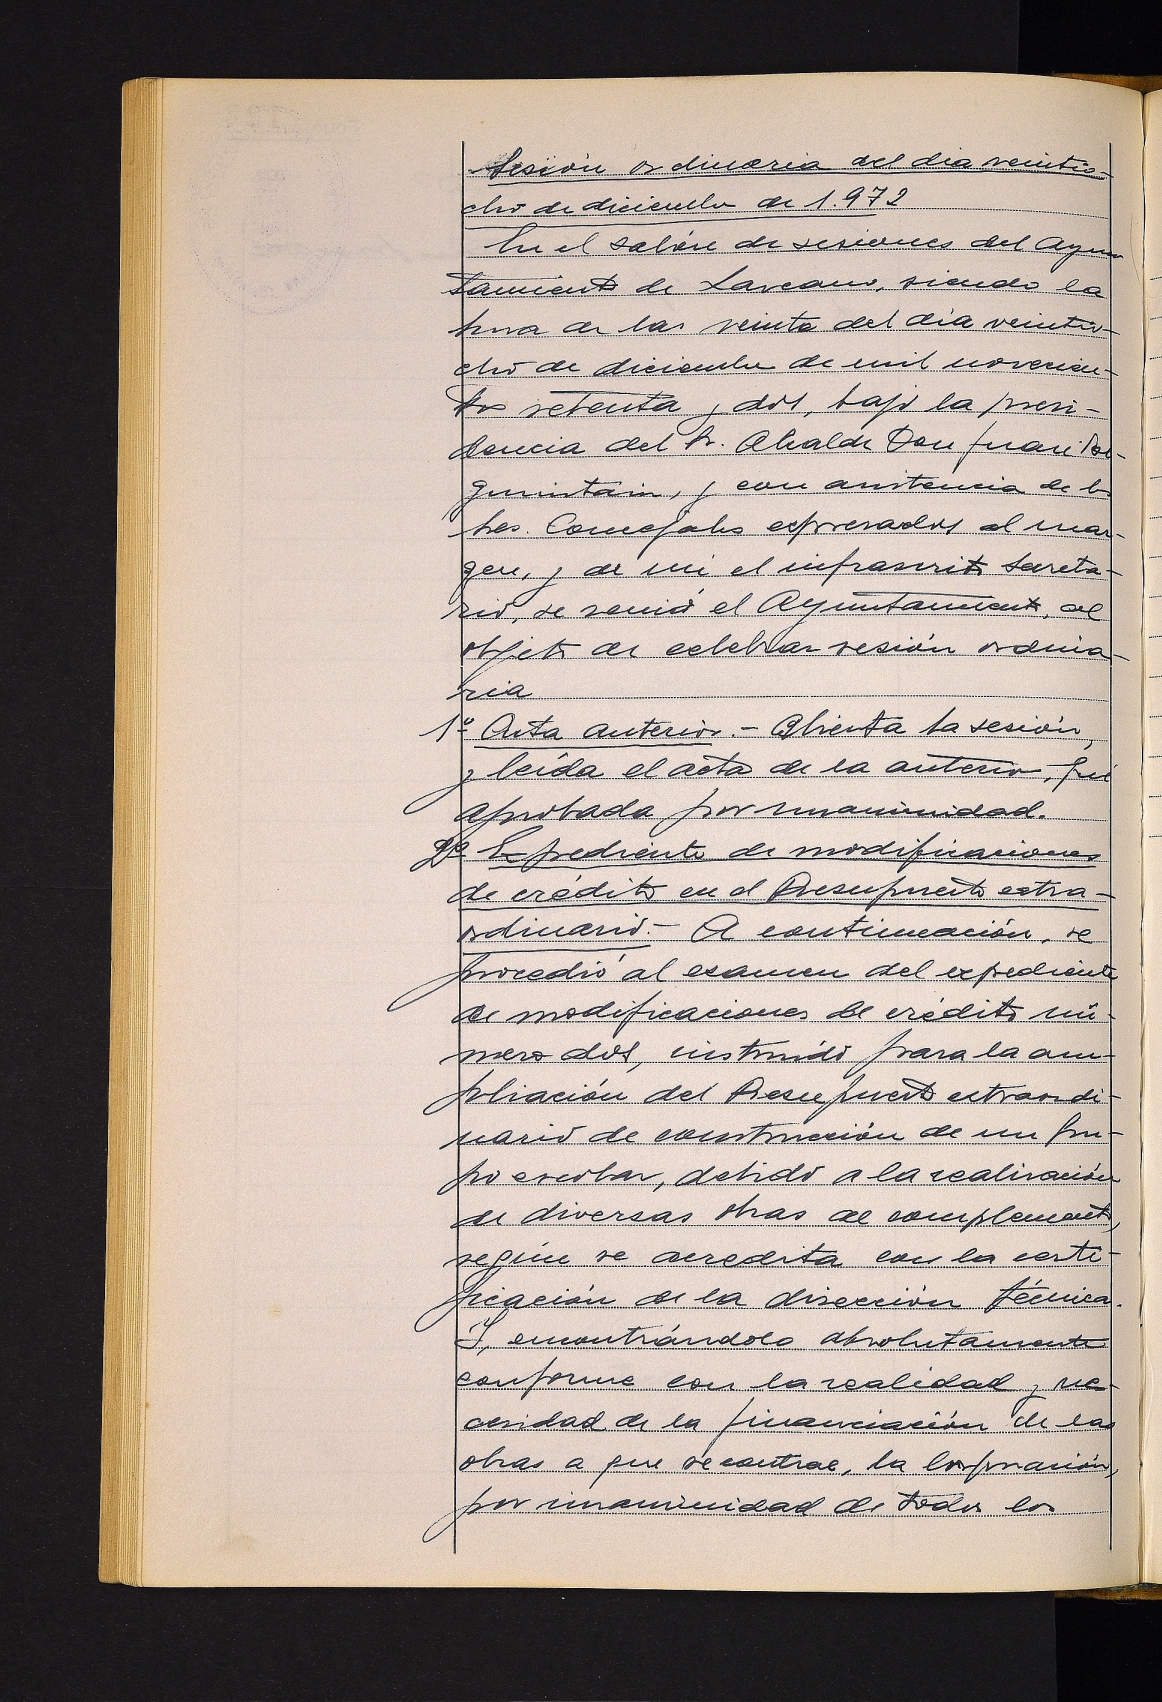 Sesión ordinaria del dia veintio-
cho de diciembre de 1.972
En el salón de sesiones del Ayun
tamiento de Lazcano, siendo la
hora de las veinte del día veintio-
cho de diciembre de mil novecien-
tos setenta y dos, bajo la presi-
dencia del Sr. Alcalde Don Juan
y con asistencia de los
Sres. Concejales expresados al mar-
gen, y de mi el infrascrito Secreta-
rio, se reunió el Ayuntamiento, al
objeto de celebrar sesión ordina-
ria
1º Acta anterior.- Abierta la sesión,
y leída el acta de la anterior, fué
aprobada por unanimidad.
2º Expediente de modificaciones
de crédito en el Presupuesto extra-
ordinario.- A continuación, se
procedió al examen del expediente
de modificaciones de crédito nú-
mero dos, instruido para la am-
pliación del Presupuesto extraordi-
nario de construcción de un gru-
po escolar, debido a la realización
de diversas obras de complemento,
según se acredita con la certi-
ficación de la dirección técnica.
Y, encontrándolo absolutamente
conforme con la realidad y ne-
cesidad de la financiación de las
obras a que se contrae, la Corporación,
por unanimidad de todos los